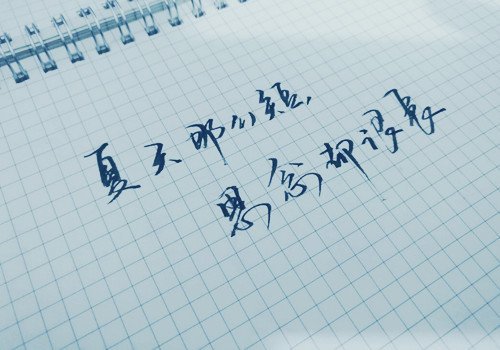 夏天那么短，
思念却很長